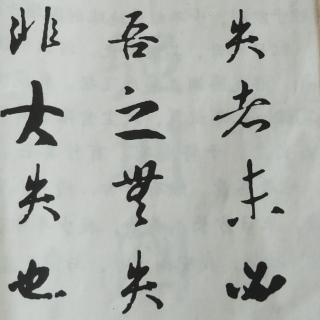 失者未必
吾之無失
非大失也